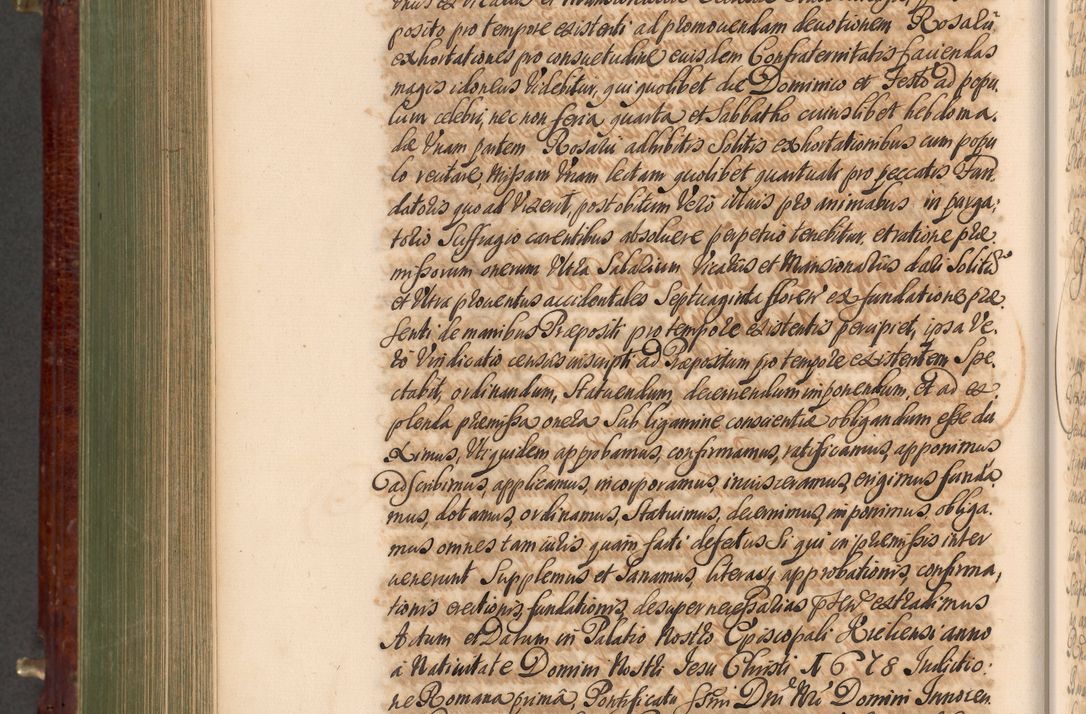 posito pro tempore existenti ad promovendam devotionem Rosarii
exhortationes pro consvetudine eiusdem Confraternitatis faciendas
magis idoneus videbitur, qui quolibet die Dominico et Festo ad popu
lum celebri, nec non feria quarta et Sabbatho cuiuslibet hebdoma,
dæ Unam partem Rosarii adhibitis Solitis exhortationibus cum popu
lo recitare, Missam Unam lectam quolibet quartuali pro peccatis Fun
datoris quo ad vixerit, post obitum vero illius pro animabus in purga,
torio Suffragio carentibus absolvere perpetuo tenebitur, et ratione præ
missorum onerum Ultra Salarium Vicariis et Mansionariis dari Solitum
et Ultra proventus accidentales Septuaginta floren ex fundatione præ
senti de manibus Præpositi pro tempore existentis percipiet, ipsa Ve,
ro Vindicatio census inscripti ad Præpositum pro tempore existentem Spe
ctabit, ordinandum, Statuendum, decernendum imponendum, et ad ex,
plenda præmissa onera Sub ligamine conscientiæ obligandum esse du
ximus, Uti quidem approbamus, confirmamus, ratificamus, apponimus
adscribimus, applicamus, incorporamus, invisceramus, erigimus funda,
mus, dotamus, ordinamus, Statuimus, decernimus, imponimus obliga.
mus omnes tam iuris quam facti defectus Si qui in præmissis inter
venerunt Supplemus et Sanamus, literasq approbationis, confirma,
tionis erectionis, fundationis, desuper necessarias extradimus
Actum et Datum in Palatio Nostro Episcopali Kielcensi anno
a Nativitate Domini Nostri Jesu Christi 1678 Indictio,
ne Romana prima, Pontificatu Domini Innocen